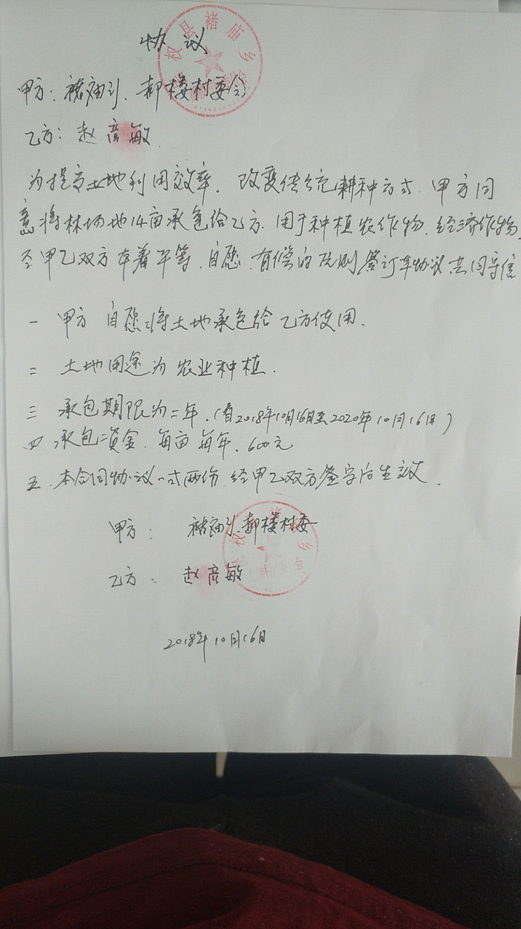 协议
权县褚庙乡
甲方：褚庙乡．郝楼村委会
乙方：赵彦敏
为提高土地利用效率．改变传统耕种方式．甲方同
意将林场地14亩承包给乙方．用于种植农作物．经济作物
经甲乙双方本着平等．自愿．有偿的原则签订本协议共同守信
一 甲方 自愿将土地承包给乙方使用．
二 土地用途为农业种植．
三 承包期限为二年．(自2018年10月16日至2020年10月16日)
四 承包资金．每亩每年．600元
五．本合同协议一式两份 经甲乙双方签字后生效．
甲方： 褚庙乡．郝楼村委
权县褚庙乡
乙方： 赵彦敏
2018年10月16日